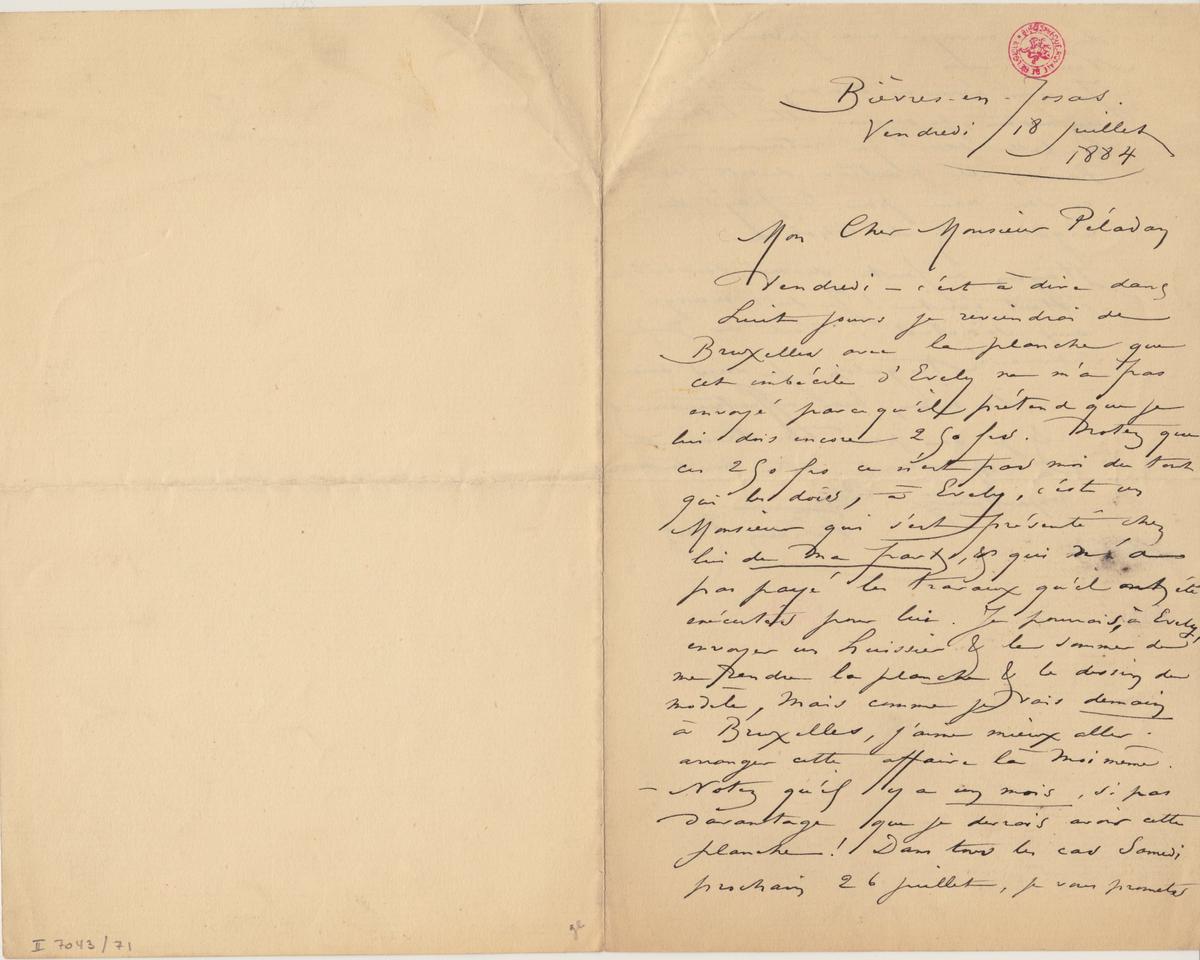 BIBLIOTHEQUE ROYALE DE BELGIQUE
Bièvres-en-Josas.
Vendredi 18 Juillet
1884
Mon Cher Monsieur Péladan
Vendredi – c'est à dire dans
huit jours je reviendrai de
Bruxelles avec la planche que
cet imbécile d'Evely ne m'a pas
envoyé parcequ'il prétend que je
lui dois encore 250 frs. Notez que
ces 250 frs ce n'est pas moi du tout
qui les dois, à Evely, c'est un
Monsieur qui s'est présenté chez
lui de ma part, & qui n'a
pas payé les travaux qu'il ont été
exécutés pour lui. Je pourrais, à Evely,
envoyer un huissier & le sommer de
me rendre la planche & le dessin du
modèle, mais comme je vais demain
à Bruxelles, j'aime mieux aller
arranger cette affaire là moi même.
– Notez qu'il y a un mois, si pas
davantage que je devrais avoir cette
planche! Dans tous les cas Samedi
prochain 26 juillet, je vous promets
II 7043/71